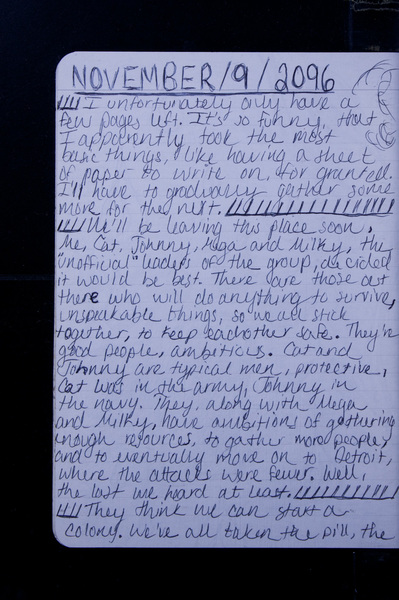 NOVEMBER/9/2096
I unfortunately only have a
few pages left. It's so funny, that
I apparently took the most
basic things, like having a sheet
of paper to write on, for granted.
I'll have to gradually gather some
more for the next.
We'll be leaving this place soon.
Me, Cat, Johnny, Mega and Milky, the
"unofficial" leaders of the group, decided
it would be best. There are those out
there who will do anything to survive,
unspeakable things, so we all stick
together, to keep eachother safe. They're
good people, ambitious. Cat and
Johnny are typical men, protective,
Cat was in the army, Johnny in
the navy. They, along with Mega
and Milky, have ambitions of gathering
enough resources, to gather more people,
and to eventually move on to Detroit,
where the attacks were fewer. Well,
the last we heard at least.
They think we can start a
colony. We've all taken the pill, the